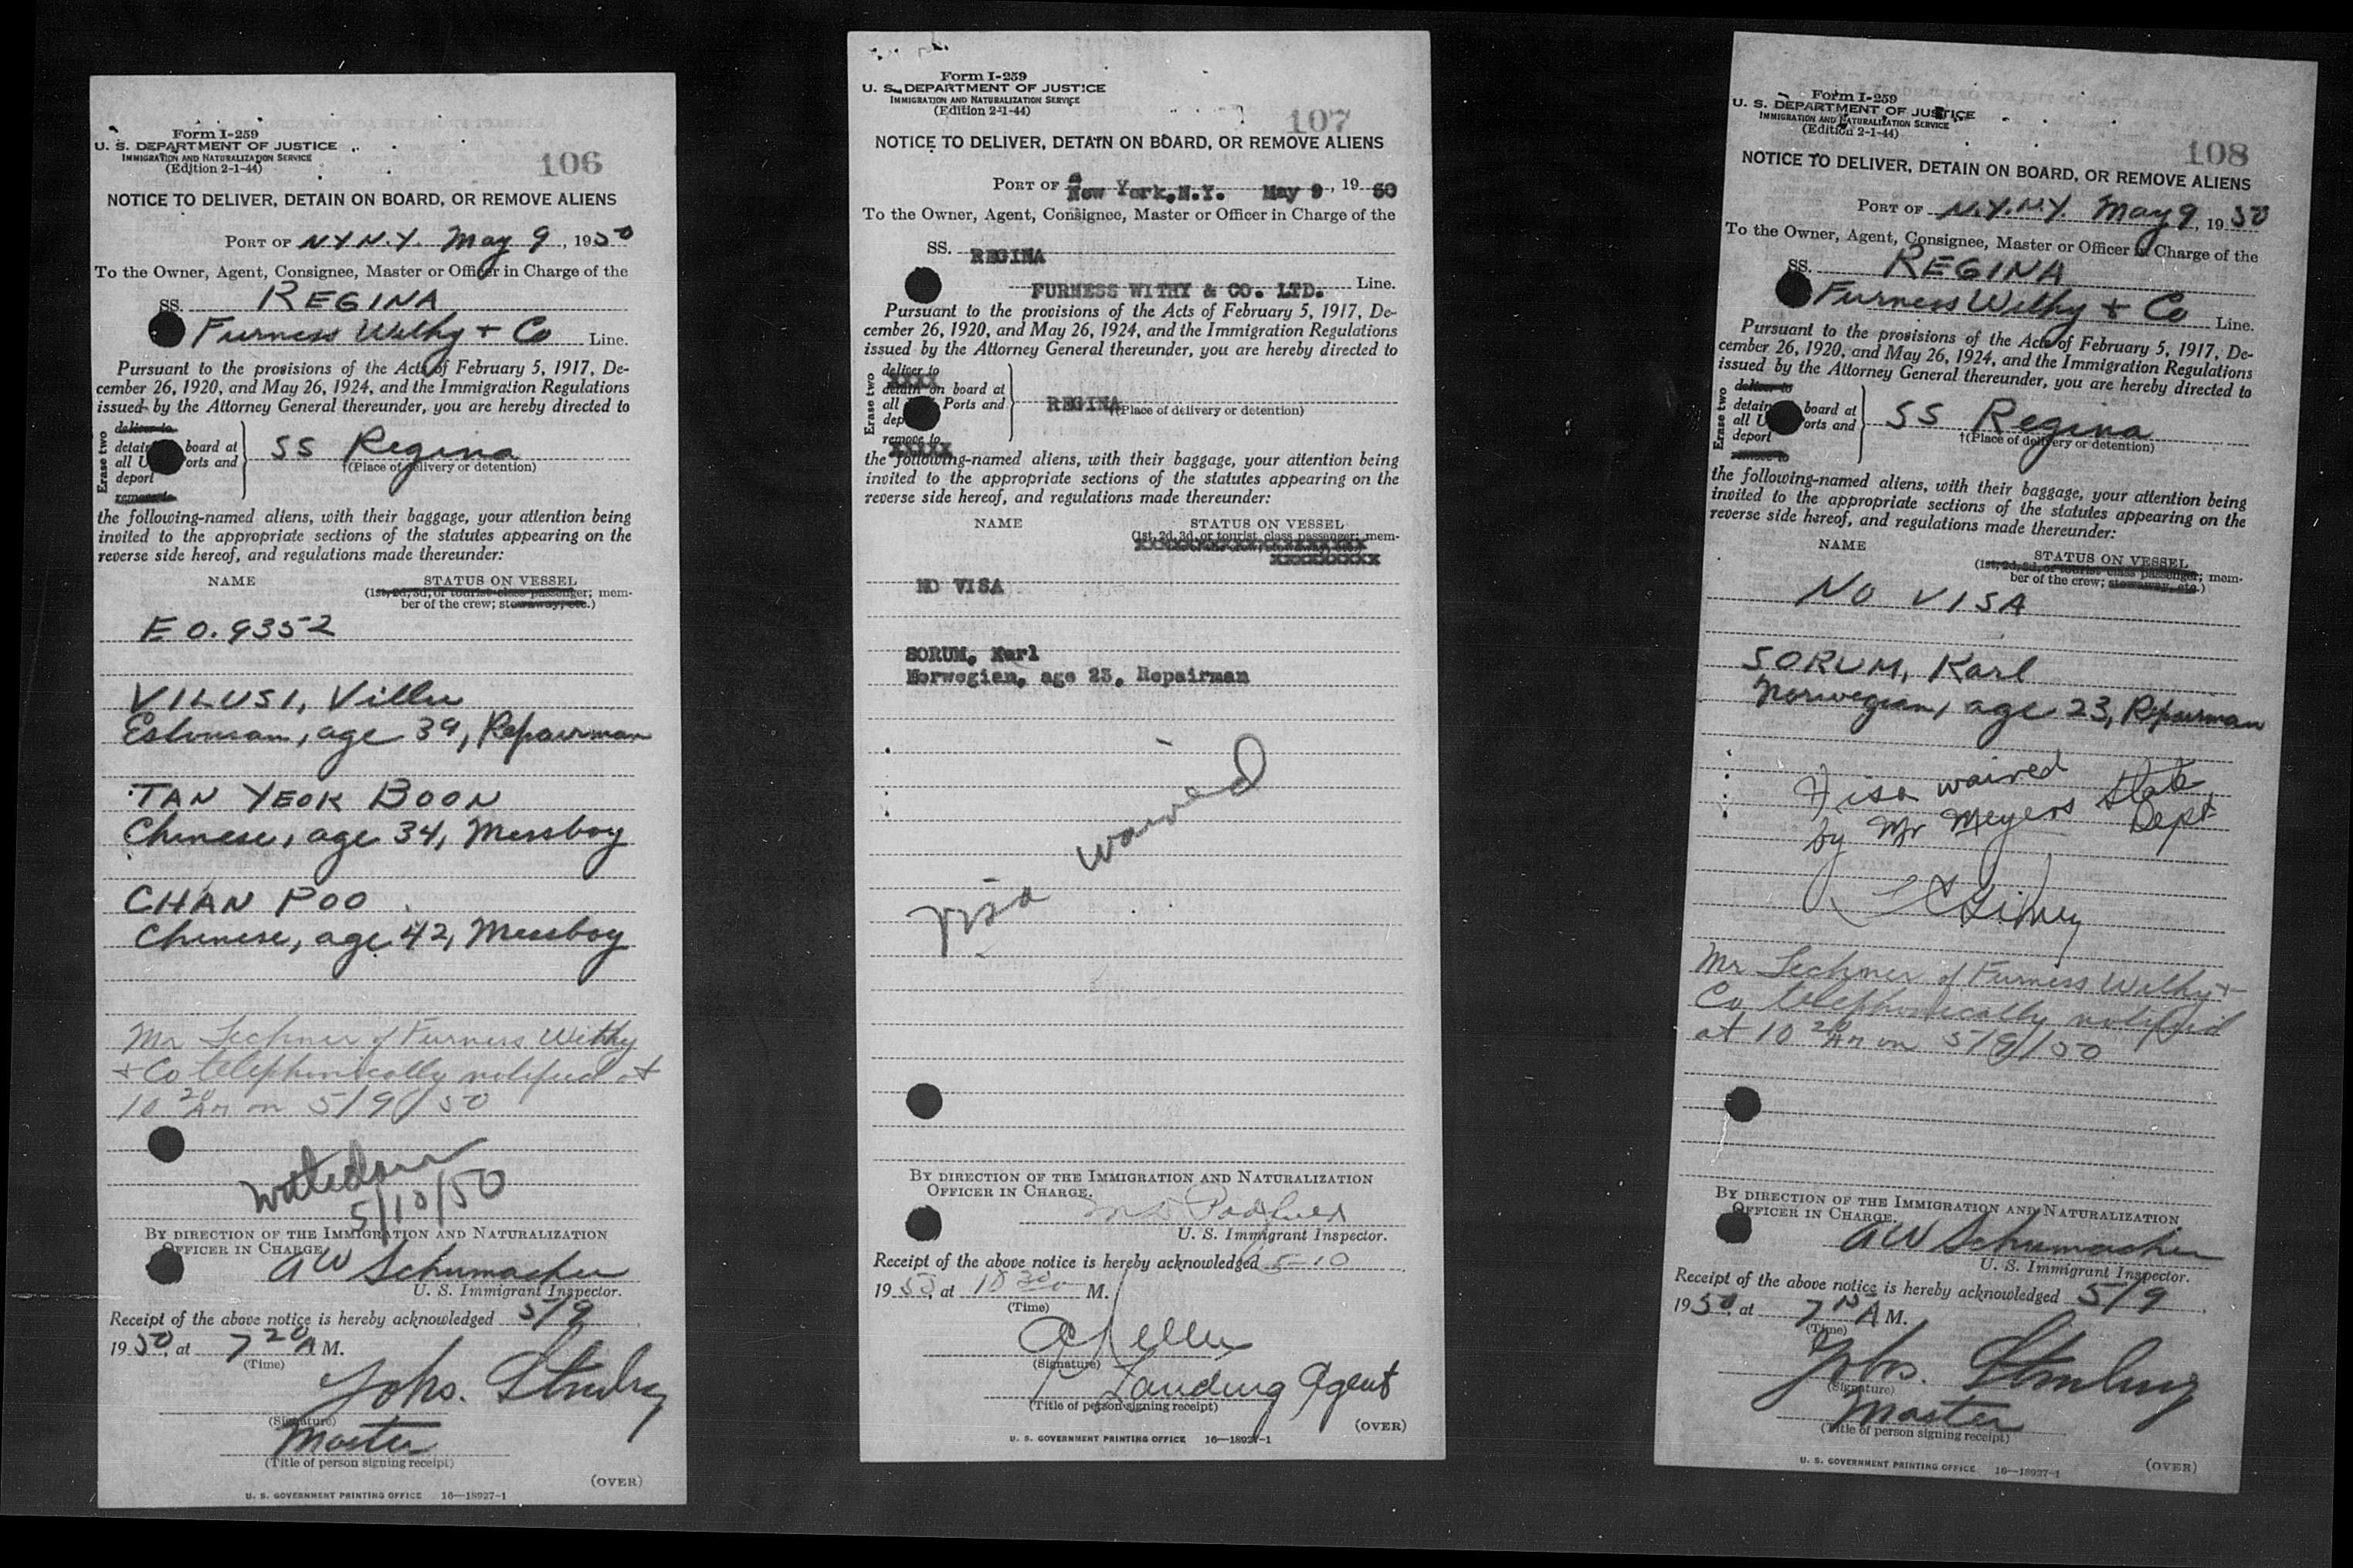 Form I-259
U. S. DEPARTMENT OF JUSTICE
IMMIGRATION AND NATURALIZATION SERVICE
(Edition 2-1-44)
106
NOTICE TO DELIVER, DETAIN ON BOARD, OR REMOVE ALIENS
PORT OF N.Y.N.Y. May 9, 1950
To the Owner, Agent, Consignee, Master or Officer in Charge of the
SS. REGINA
Furness Withy + Co Line.
Pursuant to the provisions of the Acts of February 5, 1917, De-
cember 26, 1920, and May 26, 1924, and the Immigration Regulations
issued by the Attorney General thereunder, you are hereby directed to
Erase two
deliver to
detain board at
all U orts and
deport
remove to
SS Regina
†(Place of delivery or detention)
the following-named aliens, with their baggage, your attention being
invited to the appropriate sections of the statutes appearing on the
reverse side hereof, and regulations made thereunder:
NAME STATUS ON VESSEL
(1st, 2d, 3d, or tourist class passenger; mem-
ber of the crew; stowaway, etc.)
E O. 9352
VILUSI, Villu
Estonian, age 39, Repairman
TAN YEOK BOON
Chinese, age 34, Messboy
CHAN POO
Chinese, age 42, Messboy
Mr Lechner of Furness Withy
+ Co telephonically notified at
10 20 AM on 5/9/50
5/10/50
BY DIRECTION OF THE IMMIGRATION AND NATURALIZATION
OFFICER IN CHARGE.
AW Schumacher
U. S. Immigrant Inspector.
Receipt of the above notice is hereby acknowledged 5/9
1950, at 7 20 A M.
(Time)
Johs.
(Signature)
Master
(Title of person signing receipt)
(OVER)
U. S. GOVERNMENT PRINTING OFFICE 16—18927-1
Form I-259
U. S. DEPARTMENT OF JUSTICE
IMMIGRATION AND NATURALIZATION SERVICE
(Edition 2-1-44)
107
NOTICE TO DELIVER, DETAIN ON BOARD, OR REMOVE ALIENS
PORT OF New York,N.Y. May 9, 19 50
To the Owner, Agent, Consignee, Master or Officer in Charge of the
SS. REGINA
FURNESS WITHY & CO. LTD. Line.
Pursuant to the provisions of the Acts of February 5, 1917, De-
cember 26, 1920, and May 26, 1924, and the Immigration Regulations
issued by the Attorney General thereunder, you are hereby directed to
Erase two
deliver to
detain on board at
all Ports and
dep
remove to
REGINA
†(Place of delivery or detention)
the following-named aliens, with their baggage, your attention being
invited to the appropriate sections of the statutes appearing on the
reverse side hereof, and regulations made thereunder:
NAME STATUS ON VESSEL
(1st, 2d, 3d, or tourist class passenger; mem-
NO VISA
SORUM, Karl
Norwegian, age 23, Repairman
Visa waived
BY DIRECTION OF THE IMMIGRATION AND NATURALIZATION
OFFICER IN CHARGE.
U. S. Immigrant Inspector.
Receipt of the above notice is hereby acknowledged 5-10
1950, at 10 30 M.
(Time)
(Signature)
Landing Agent
(Title of person signing receipt)
(OVER)
U. S. GOVERNMENT PRINTING OFFICE 16—18927-1
Form I-259
U. S. DEPARTMENT OF JUSTICE
IMMIGRATION AND NATURALIZATION SERVICE
(Edition 2-1-44)
108
NOTICE TO DELIVER, DETAIN ON BOARD, OR REMOVE ALIENS
PORT OF N.Y.N.Y. May 9, 19 50
To the Owner, Agent, Consignee, Master or Officer in Charge of the
SS. REGINA
Furness Withy + Co Line.
Pursuant to the provisions of the Acts of February 5, 1917, De-
cember 26, 1920, and May 26, 1924, and the Immigration Regulations
issued by the Attorney General thereunder, you are hereby directed to
Erase two
deliver to
detain board at
all U orts and
deport
remove to
SS Regina
†(Place of delivery or detention)
the following-named aliens, with their baggage, your attention being
invited to the appropriate sections of the statutes appearing on the
reverse side hereof, and regulations made thereunder:
NAME STATUS ON VESSEL
(1st, 2d, 3d, or tourist class passenger; mem-
ber of the crew; stowaway, etc.)
NO VISA
SORUM, Karl
Norwegian, age 23, Repairman
Visa waived
by Mr Meyers State
Dept
Mr Lechner of Furness Withy +
Co telephonically notified
at 10 20 AM on 5/9/50
BY DIRECTION OF THE IMMIGRATION AND NATURALIZATION
OFFICER IN CHARGE.
AW Schumacher
U. S. Immigrant Inspector.
Receipt of the above notice is hereby acknowledged 5/9
1950, at 7 15 A M.
(Time)
Johs.
(Signature)
Master
(Title of person signing receipt)
(OVER)
U. S. GOVERNMENT PRINTING OFFICE 16—18927-1